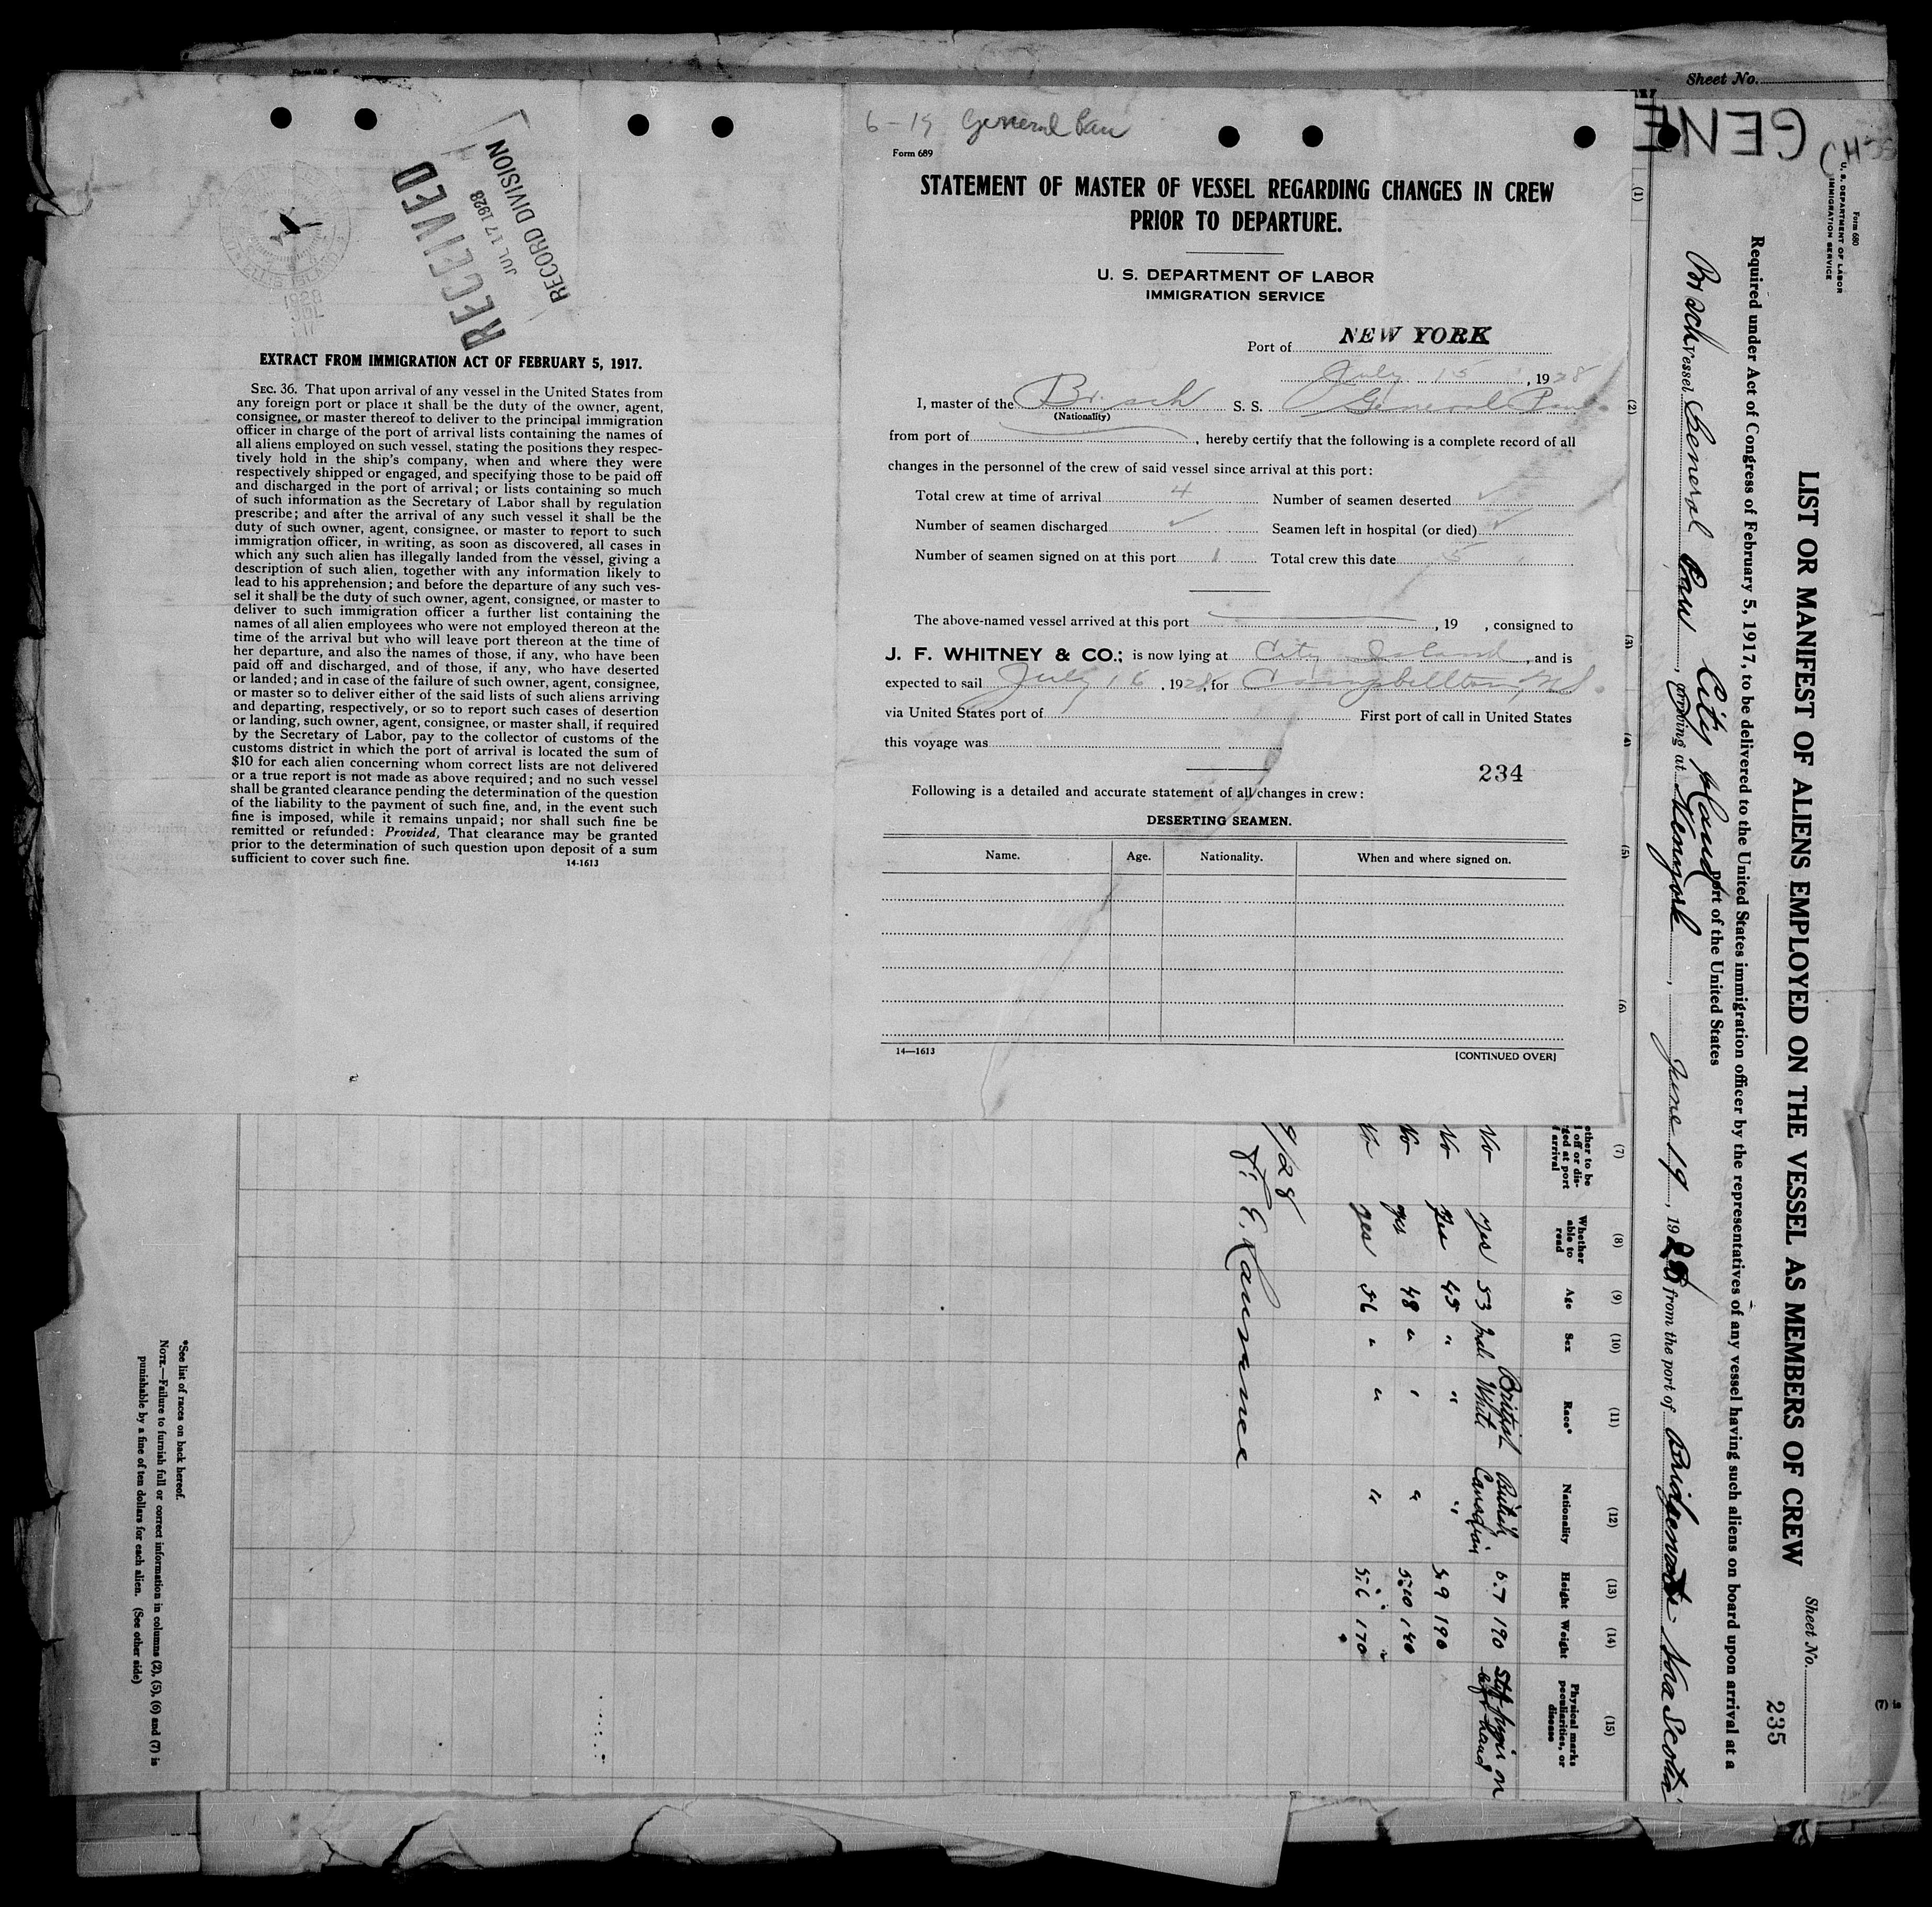 Form 680
Sheet No.
RECEIVED
JUL 17 1928
RECORD DIVISION
ELLIS ISLAND
1928
JUL
17
EXTRACT FROM IMMIGRATION ACT OF FEBRUARY 5, 1917.
SEC. 36. That upon arrival of any vessel in the United States from
any foreign port or place it shall be the duty of the owner, agent,
consignee, or master thereof to deliver to the principal immigration
officer in charge of the port of arrival lists containing the names of
all aliens employed on such vessel, stating the positions they respec-
tively hold in the ship's company, when and where they were
respectively shipped or engaged, and specifying those to be paid off
and discharged in the port of arrival; or lists containing so much
of such information as the Secretary of Labor shall by regulation
prescribe; and after the arrival of any such vessel it shall be the
duty of such owner, agent, consignee, or master to report to such
immigration officer, in writing, as soon as discovered, all cases in
which any such alien has illegally landed from the vessel, giving a
description of such alien, together with any information likely to
lead to his apprehension; and before the departure of any such ves-
sel it shall be the duty of such owner, agent, consignee, or master to
deliver to such immigration officer a further list containing the
names of all alien employees who were not employed thereon at the
time of the arrival but who will leave port thereon at the time of
her departure, and also the names of those, if any, who have been
paid off and discharged, and of those, if any, who have deserted
or landed; and in case of the failure of such owner, agent, consignee,
or master so to deliver either of the said lists of such aliens arriving
and departing, respectively, or so to report such cases of desertion
or landing, such owner, agent, consignee, or master shall, if required
by the Secretary of Labor, pay to the collector of customs of the
customs district in which the port of arrival is located the sum of
$10 for each alien concerning whom correct lists are not delivered
or a true report is not made as above required; and no such vessel
shall be granted clearance pending the determination of the question
of the liability to the payment of such fine, and, in the event such
fine is imposed, while it remains unpaid; nor shall such fine be
remitted or refunded: Provided, That clearance may be granted
prior to the determination of such question upon deposit of a sum
sufficient to cover such fine. 14-1613
6-19 General Pau
Form 689
STATEMENT OF MASTER OF VESSEL REGARDING CHANGES IN CREW
PRIOR TO DEPARTURE.
U. S. DEPARTMENT OF LABOR
IMMIGRATION SERVICE
Port of NEW YORK
July 15, 1928
I, master of the Br. sch S. S. General Pau
(Nationality)
from port of , hereby certify that the following is a complete record of all
changes in the personnel of the crew of said vessel since arrival at this port:
Total crew at time of arrival 4 Number of seamen deserted ✓
Number of seamen discharged ✓ Seamen left in hospital (or died) ✓
Number of seamen signed on at this port 1 Total crew this date 5
The above-named vessel arrived at this port , 19 , consigned to
J. F. WHITNEY & CO.; is now lying at City Island, and is
expected to sail July 16, 1928, for Campbellton
via United States port of First port of call in United States
this voyage was
234
Following is a detailed and accurate statement of all changes in crew:
DESERTING SEAMEN.
Name. Age. Nationality. When and where signed on.
14—1613 [CONTINUED OVER]
GENE
Form 680
U. S. DEPARTMENT OF LABOR
IMMIGRATION SERVICE
Sheet No.
235
LIST OR MANIFEST OF ALIENS EMPLOYED ON THE VESSEL AS MEMBERS OF CREW
Required under Act of Congress of February 5, 1917, to be delivered to the United States immigration officer by the representatives of any vessel having such aliens on board upon arrival at a
port of the United States
City Island
Br sch Vessel General Pau, arriving at New york, June 19, 1928, from the port of Bridgewater Nova Scotia
(1) (2) (3) (4) (5) (6) (7) (8) (9) (10) (11) (12) (13) (14) (15)
ether to be
off or dis-
ged at port
arrival
Whether
able to
read
Age
Sex
Race*
Nationality
Height
Weight
Physical marks
peculiarities, or
disease
British British
No yes 53 Male White Canadian 5.7 190 on
left hand
No yes 45 " " " 5 9 190
No yes 48 " " " 5.10 140
No yes 56 " " " 5.6 170
9/28
*See list of races on back hereof.
NOTE.—Failure to furnish full or correct information in columns (2), (5), (6) and (7) is
punishable by a fine of ten dollars for each alien. (See other side)
(7) is